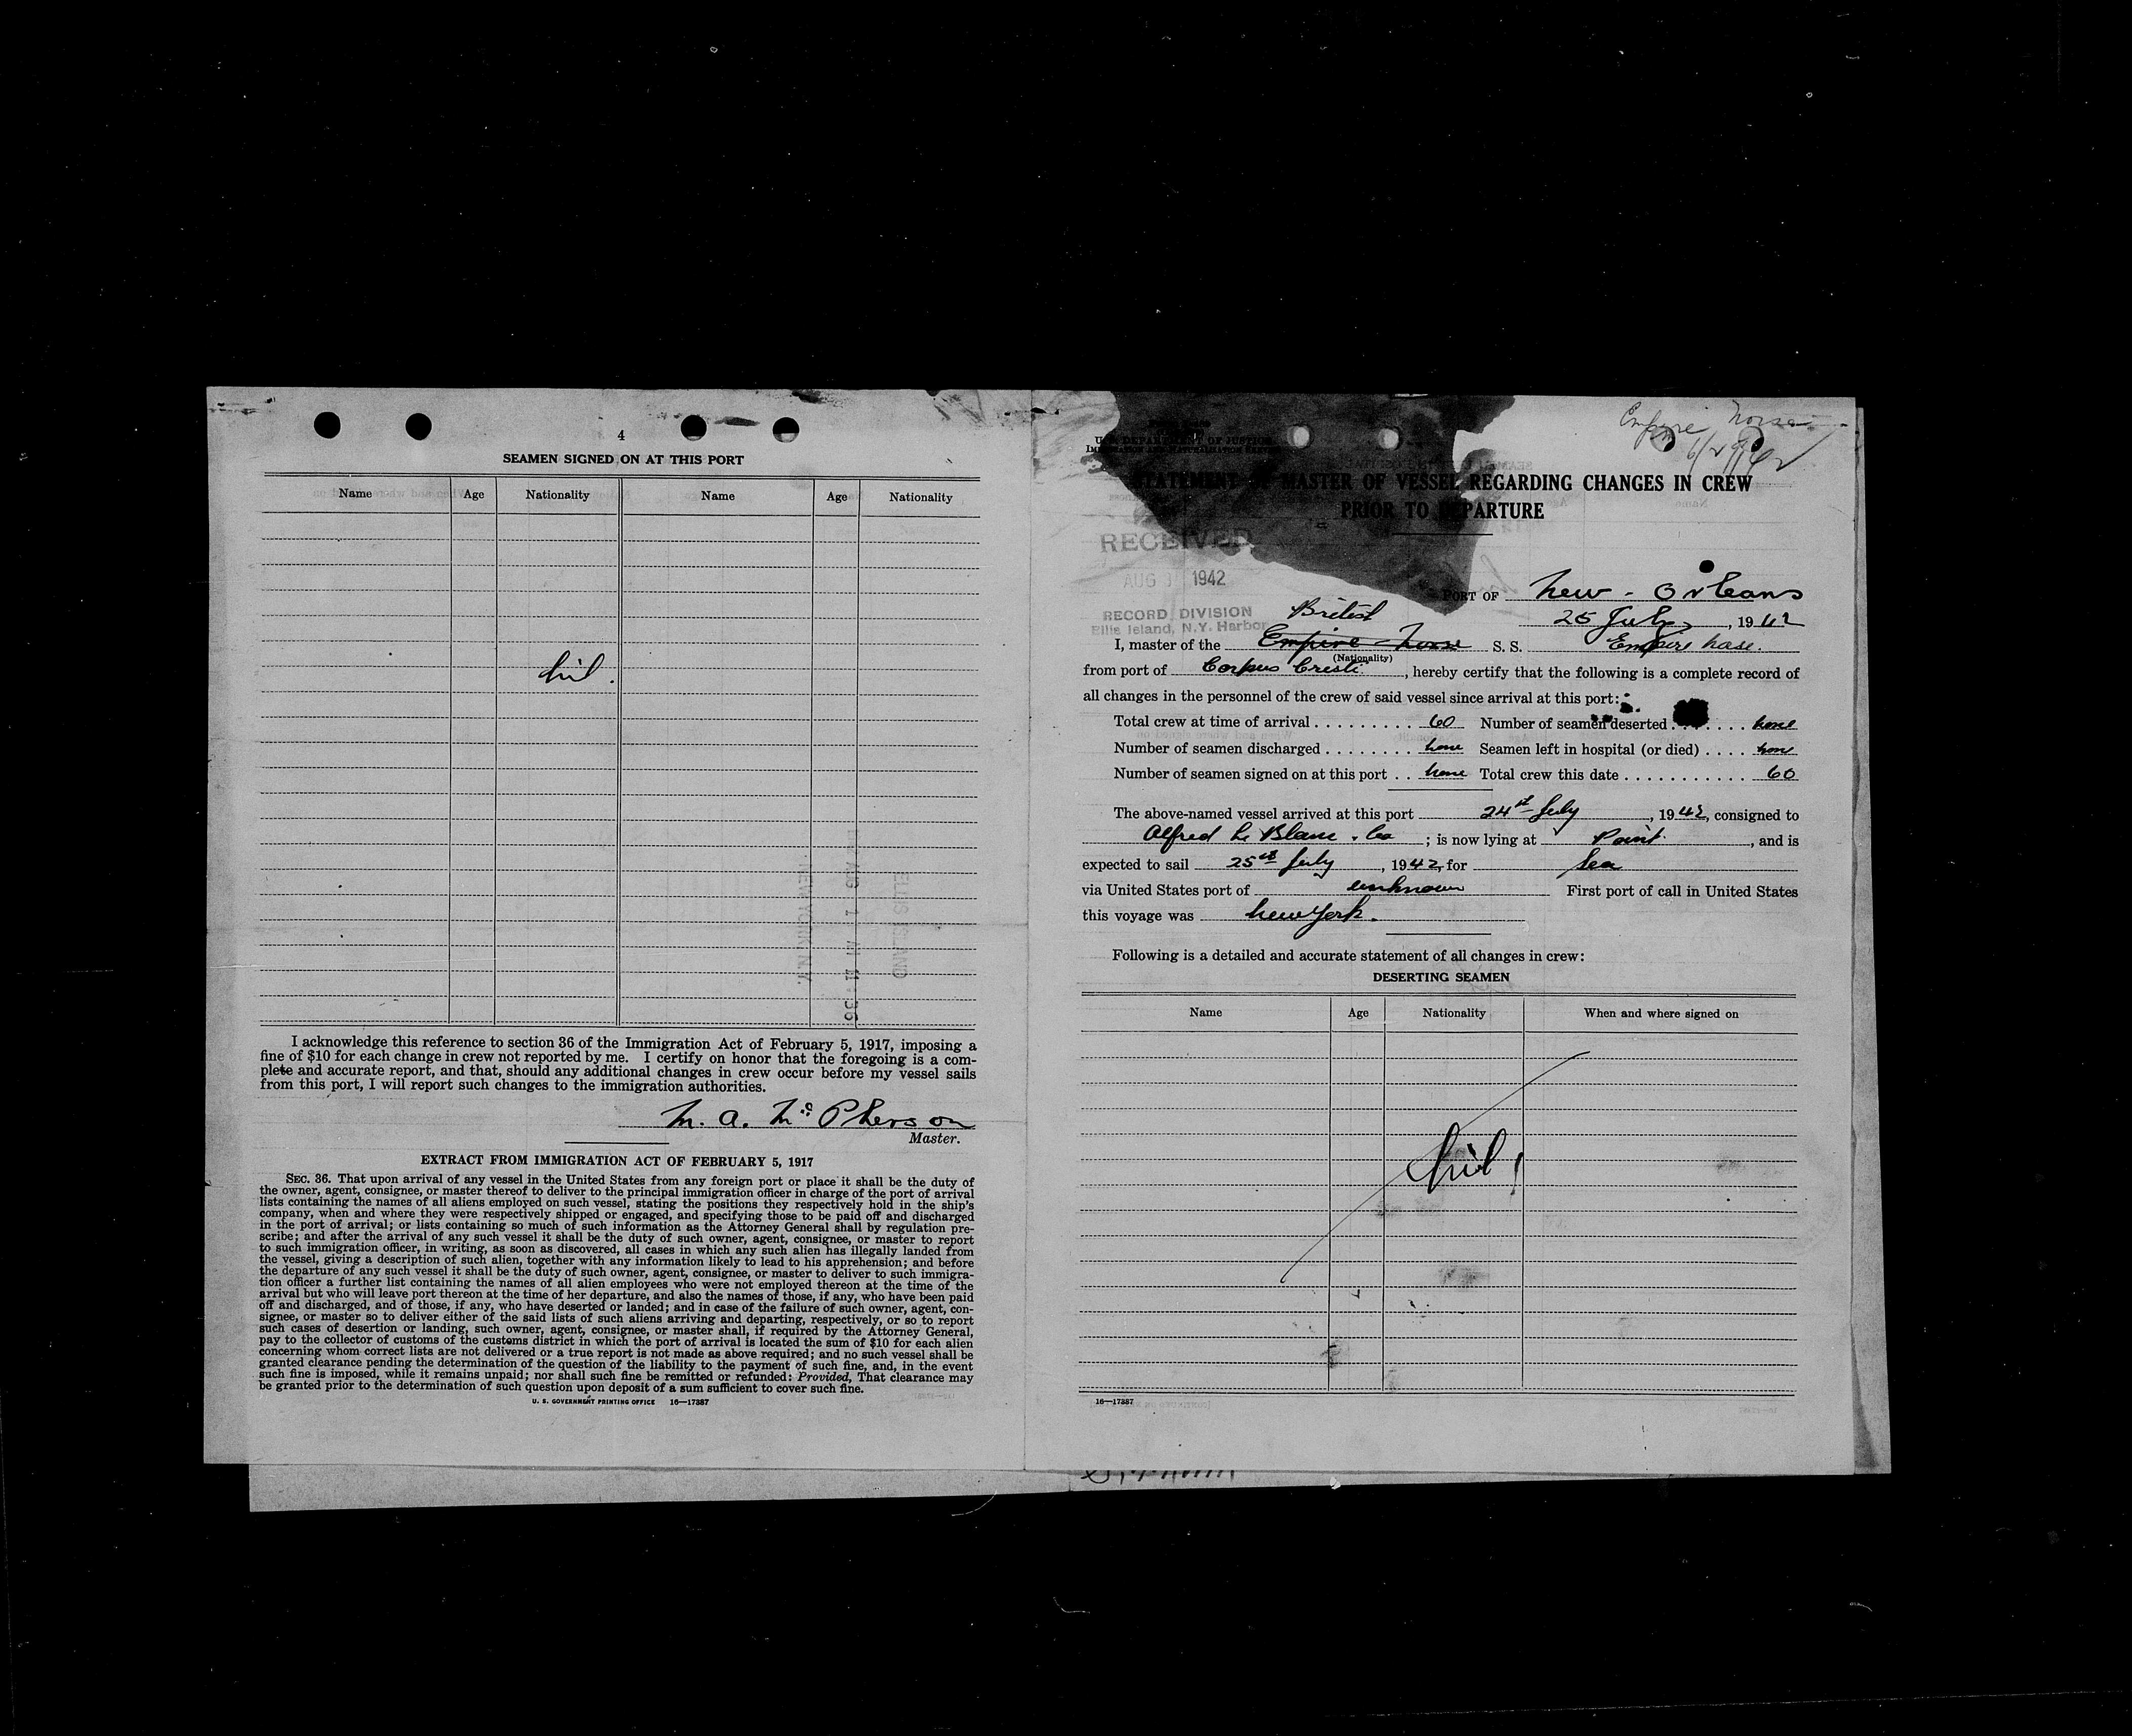 4
SEAMEN SIGNED ON AT THIS PORT
Name Age Nationality Name Age Nationality
Nil.
I acknowledge this reference to section 36 of the Immigration Act of February 5, 1917, imposing a
fine of $10 for each change in crew not reported by me. I certify on honor that the foregoing is a com-
plete and accurate report, and that, should any additional changes in crew occur before my vessel sails
from this port, I will report such changes to the immigration authorities.
M. A. McPherson
Master.
EXTRACT FROM IMMIGRATION ACT OF FEBRUARY 5, 1917
SEC. 36. That upon arrival of any vessel in the United States from any foreign port or place it shall be the duty of
the owner, agent, consignee, or master thereof to deliver to the principal immigration officer in charge of the port of arrival
lists containing the names of all aliens employed on such vessel, stating the positions they respectively hold in the ship's
company, when and where they were respectively shipped or engaged, and specifying those to be paid off and discharged
in the port of arrival; or lists containing so much of such information as the Attorney General shall by regulation pre-
scribe; and after the arrival of any such vessel it shall be the duty of such owner, agent, consignee, or master to report
to such immigration officer, in writing, as soon as discovered, all cases in which any such alien has illegally landed from
the vessel, giving a description of such alien, together with any information likely to lead to his apprehension; and before
the departure of any such vessel it shall be the duty of such owner, agent, consignee, or master to deliver to such immigra-
tion officer a further list containing the names of all alien employees who were not employed thereon at the time of the
arrival but who will leave port thereon at the time of her departure, and also the names of those, if any, who have been paid
off and discharged, and of those, if any, who have deserted or landed; and in case of the failure of such owner, agent, con-
signee, or master so to deliver either of the said lists of such aliens arriving and departing, respectively, or so to report
such cases of desertion or landing, such owner, agent, consignee, or master shall, if required by the Attorney General,
pay to the collector of customs of the customs district in which the port of arrival is located the sum of $10 for each alien
concerning whom correct lists are not delivered or a true report is not made as above required; and no such vessel shall be
granted clearance pending the determination of the question of the liability to the payment of such fine, and, in the event
such fine is imposed, while it remains unpaid; nor shall such fine be remitted or refunded: Provided, That clearance may
be granted prior to the determination of such question upon deposit of a sum sufficient to cover such fine.
U. S. GOVERNMENT PRINTING OFFICE 16—17387
Empire Norse
U. S. DEPARTMENT OF JUSTICE
IMMIGRATION AND NATURALIZATION SERVICE
STATEMENT OF MASTER OF VESSEL REGARDING CHANGES IN CREW
PRIOR TO DEPARTURE
RECEIVED
AUG 1942
RECORD DIVISION
Ellis Island, N.Y. Harbor
PORT OF New - Orleans
25 July, 1942
British
I, master of the Empire Norse S. S. Empire Norse.
(Nationality)
from port of Corpus Cristi, hereby certify that the following is a complete record of
all changes in the personnel of the crew of said vessel since arrival at this port:
Total crew at time of arrival . . . . . . . . . 60 Number of seamen deserted . . . . . . none
Number of seamen discharged . . . . . . . . none Seamen left in hospital (or died) . . . . none
Number of seamen signed on at this port . . none Total crew this date . . . . . . . . . . . 60
The above-named vessel arrived at this port 24st July, 1942, consigned to
Alfred Le Blanc . Co ; is now lying at Point, and is
expected to sail 25th July, 1942, for Sea
via United States port of unknown First port of call in United States
this voyage was New York.
Following is a detailed and accurate statement of all changes in crew:
DESERTING SEAMEN
Name Age Nationality When and where signed on
Nil
16—17387